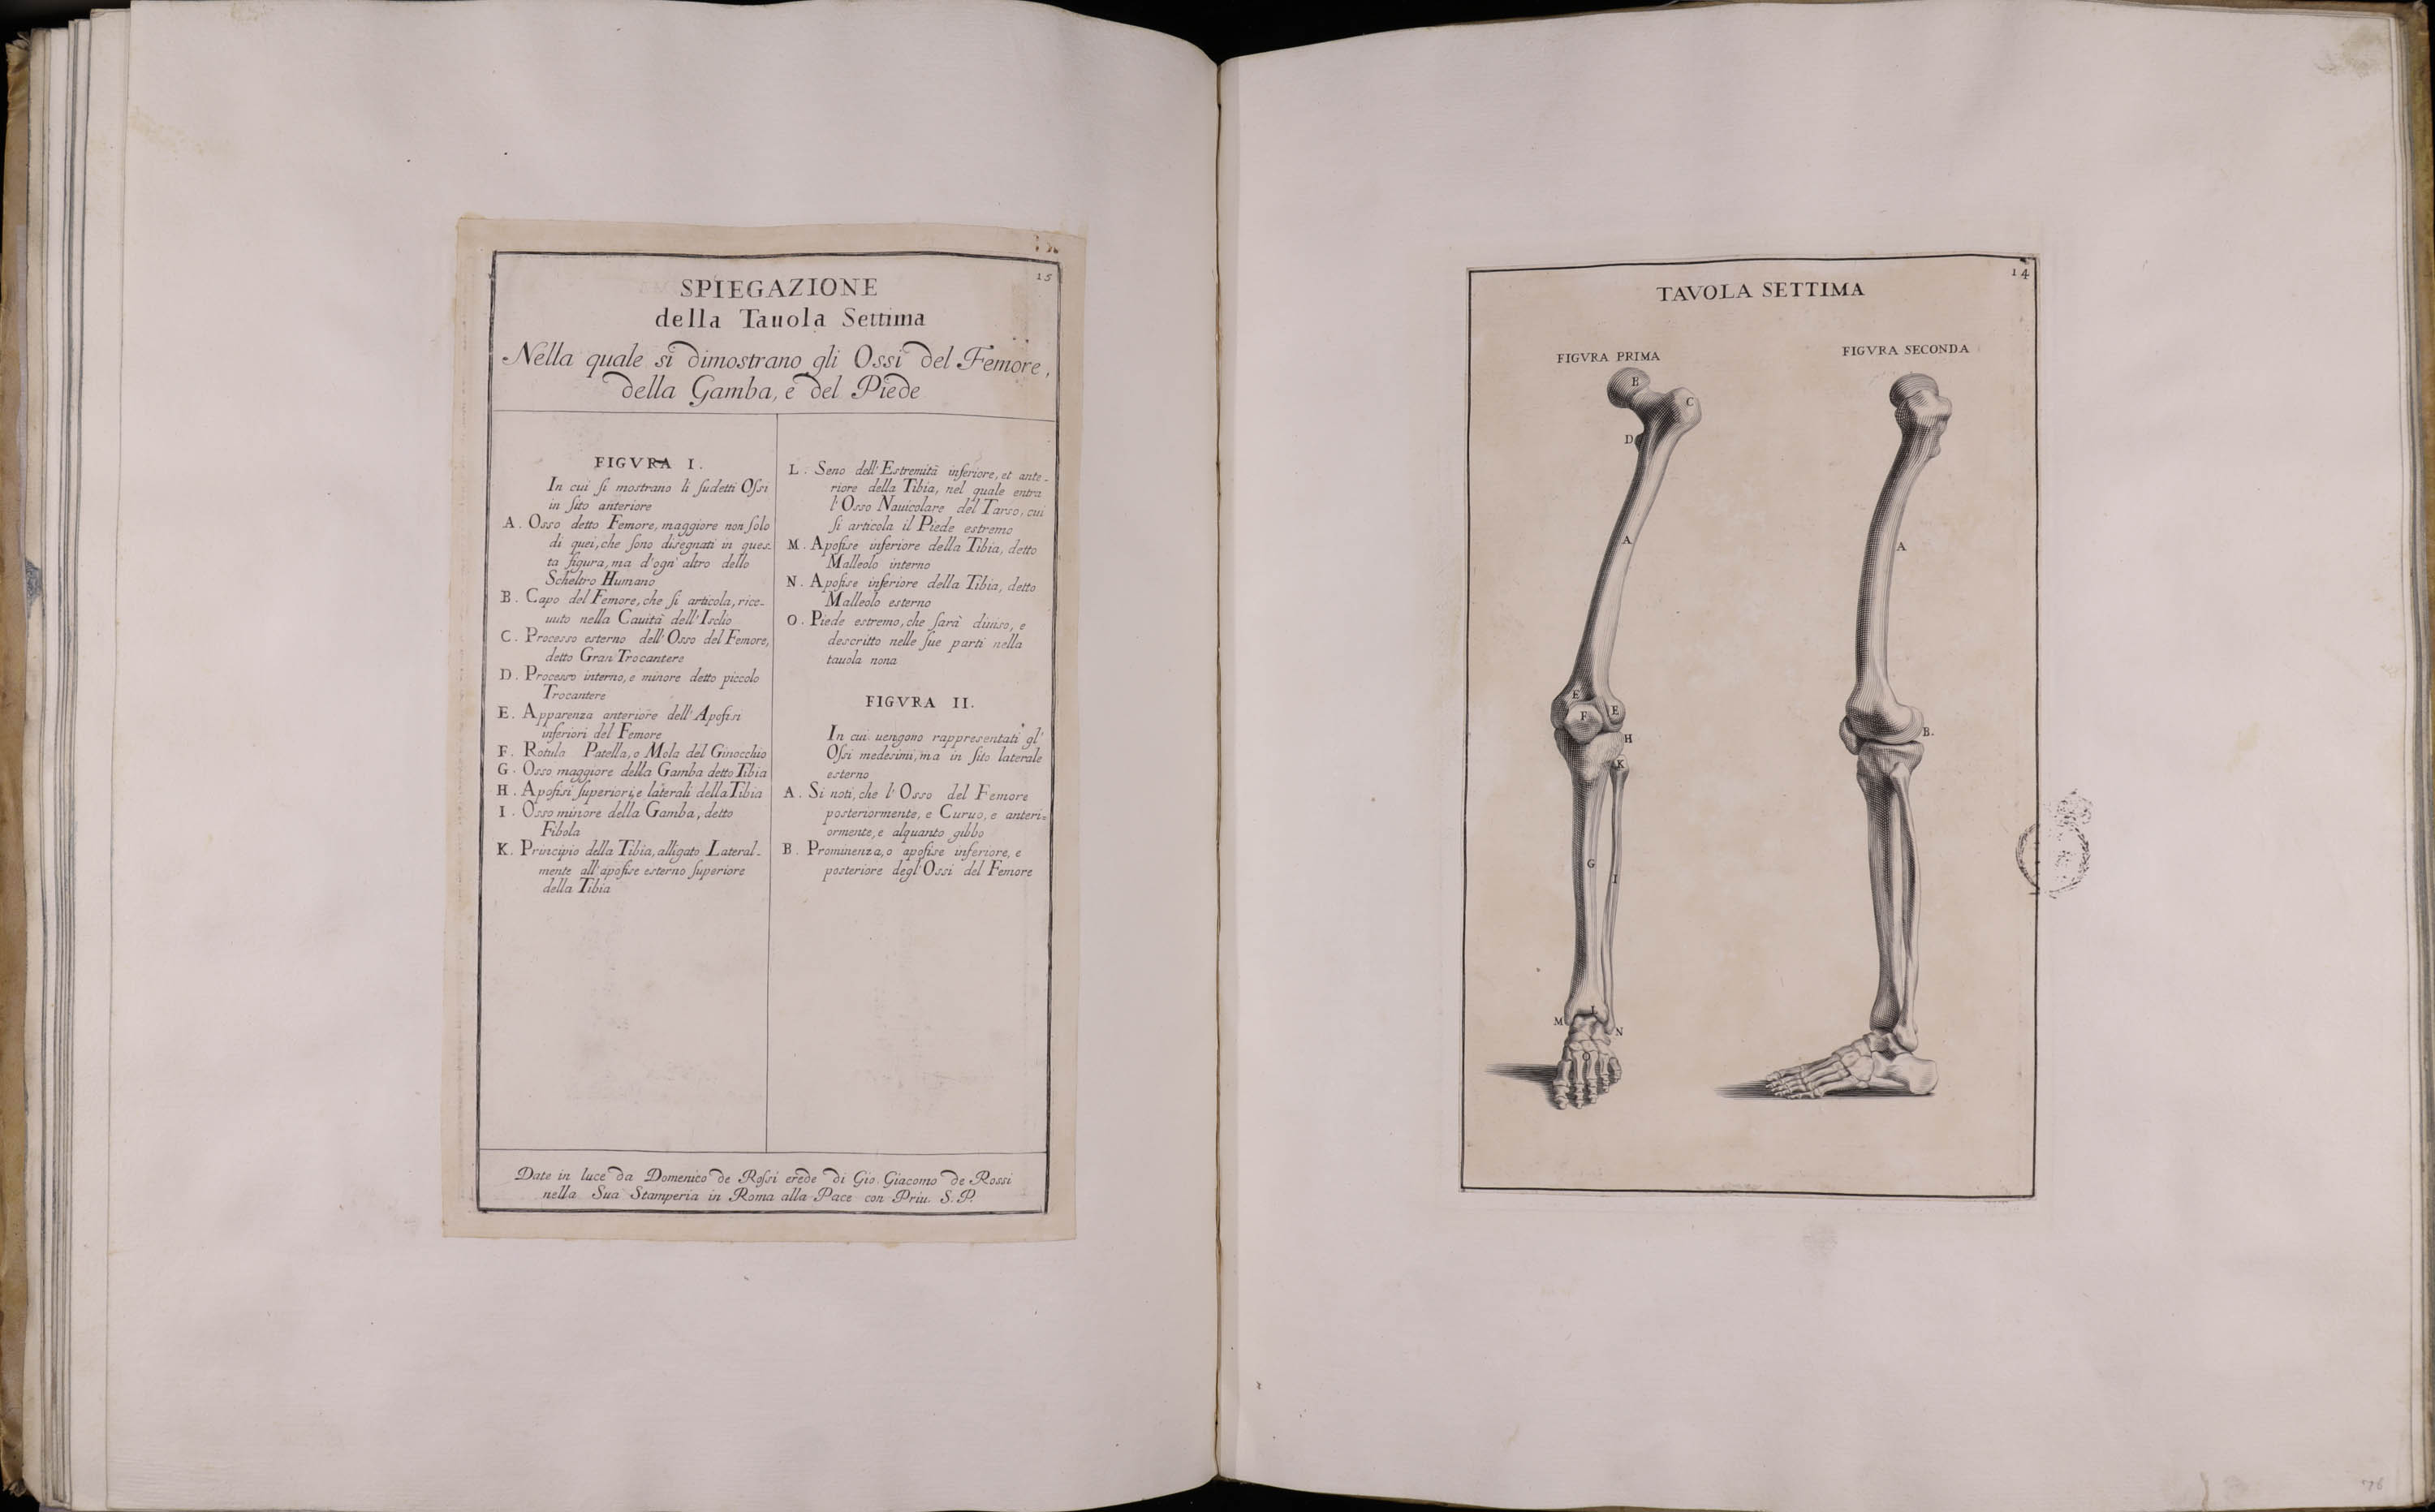 15
SPIEGAZIONE
della Tauola Settima
Nella quale si dimostrano gli Ossi del Femore,
della Gamba, e del Piede
FIGVRA I.
In cui ſi mostrano li ſudetti Oſsi
in ſito anteriore
A. Osso detto Femore, maggiore non ſolo
di quei, che ſono disegnati in ques-
ta figura, ma d'ogn' altro dello
Scheltro Humano
B. Capo del Femore, che ſi articola, rice-
uuto nella Cauità dell'Ischio
C. Processo esterno dell'Osso del Femore,
detto Gran Trocantere
D. Processo interno, e minore detto piccolo
Trocantere
E. Apparenza anteriore dell'Apofisi
inferiori del Femore
F. Rotula Patella, o Mola del Ginocchio
G. Osso maggiore della Gamba detto Tibia
H. Apofisi ſuperiori, e laterali della Tibia
I. Osso minore della Gamba, detto
Fibola
K. Principio della Tibia, alligato Lateral-
mente all'apofise esterno ſuperiore
della Tibia
L. Seno dell'Estremità inferiore, et ante-
riore della Tibia, nel quale entra
l'Osso Nauicolare del Tarso, cui
ſi articola il Piede estremo
M. Apofise inferiore della Tibia, detto
Malleolo interno
N. Apofise inferiore della Tibia, detto
Malleolo esterno
O. Piede estremo, che ſarà diuiso, e
descritto nelle ſue parti nella
tauola nona
FIGVRA II.
In cui uengono rappresentati gl'
Oſsi medesimi, ma in ſito laterale
esterno
A. Si noti, che l'Osso del Femore
posteriormente, e Curuo, e anteri=
ormente, e alquanto gibbo
B. Prominenza, o apofise inferiore, e
posteriore degl'Ossi del Femore
Date in luce da Domenico de Roſsi erede di Gio. Giacomo de Rossi
nella Sua Stamperia in Roma alla Pace con Priu. S. P.
14
TAVOLA SETTIMA
FIGVRA PRIMA
B
C
D
A
E
E
F
H
K
G
I
L
M
N
O
FIGVRA SECONDA
A
B.